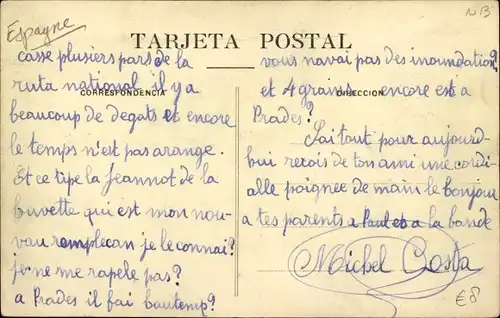 Espagne
NB
TARJETA POSTAL
CORRESPONDENCIA
casse plusiers pars de la
ruta national il y a
beaucoup de degats et encore
le temps n'est pas arange.
Et ce tipe la Jeannot de la
buvette qui est mon nou-
vau remplecan je le connai?
je ne me rapele pas?
a Prades il fai bautemp?
DIRECCION
vous navai pas des inoundation?
et 4 grains encore est a
Prades?
Sai tout pour aujourd-
hui recois de ton ami une cordi-
alle paignee de main le bonjou
a tes parents a Paul et a la bande
Michel Costa
€8